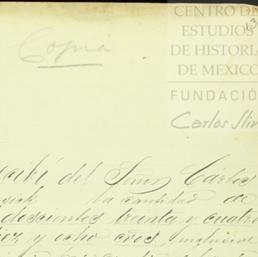 CENTRO DE
ESTUDIOS
DE HISTORIA
DE MEXICO
FUNDACIÓ
Carlos Sli
Copia
cibí del Señor Carlos
la cantidad de
doscientos treinta y cuatro
y ocho